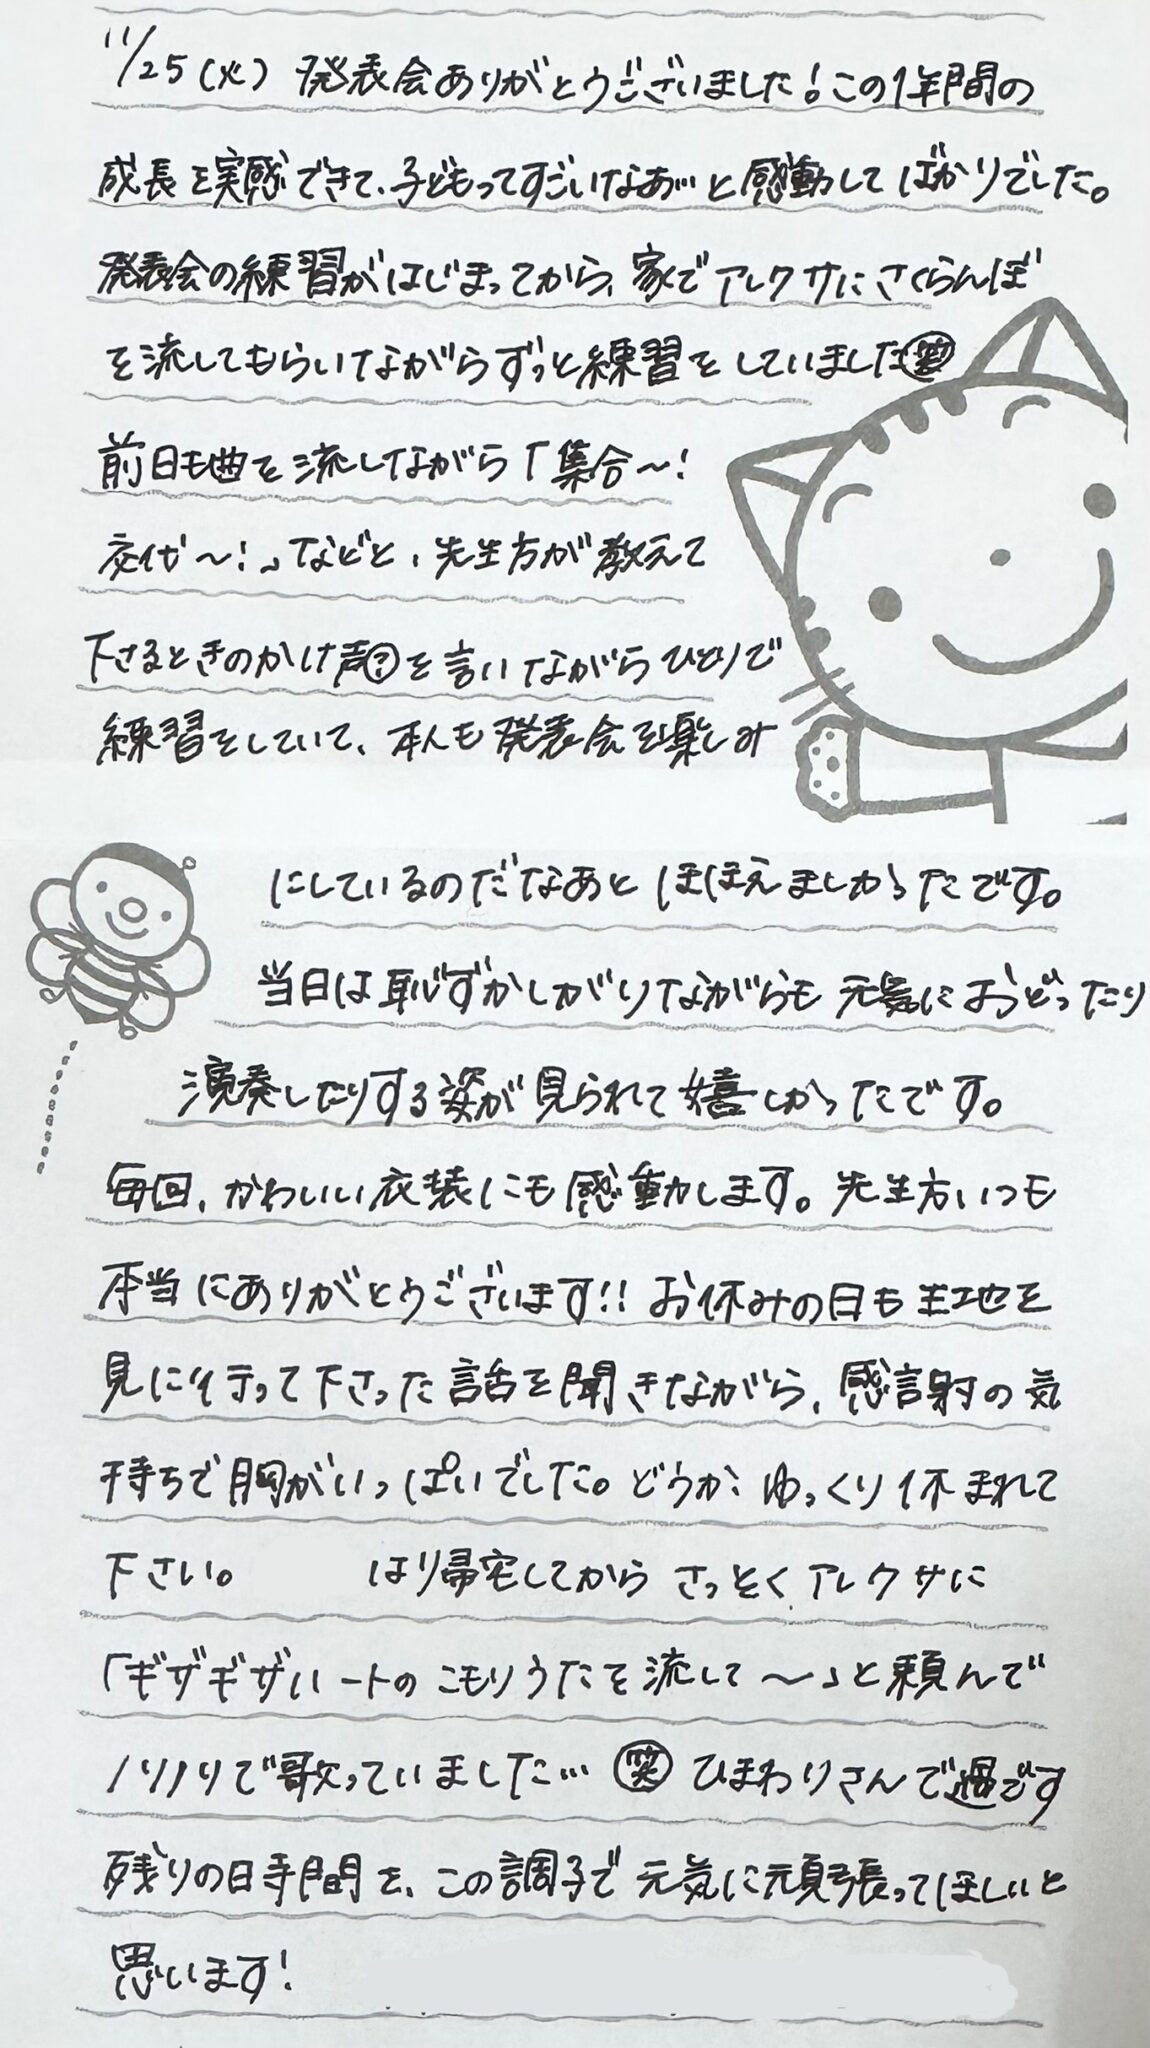 11/25(火) 発表会ありがとうございました!この1年間の
成長を実感できて、子どもってすごいなあ…と感動してばかりでした。
発表会の練習がはじまってから、家でアレクサにさくらんぼ
を流してもらいながらずっと練習をしていました㊗笑
前日も曲を流しながら「集合〜!
交代〜!」などと、先生方が教えて
下さるときのかけ声?を言いながらひとりで
練習をしていて、本人も発表会を楽しみ
にしているのだなあとほほえましかったです。
当日は恥ずかしがりながらも元気におどったり
演奏したりする姿が見られて嬉しかったです。
毎回、かわいい衣装にも感動します。先生方いつも
本当にありがとうございます!!お休みの日も生地を
見に行って下さった話を聞きながら、感謝の気
持ちで胸がいっぱいでした。どうかゆっくり休まれて
下さい。 はり帰宅してからさっそくアレクサに
「ギザギザハートのこもりうたを流して〜」と頼んで
ノリノリで歌っていました…笑 ひまわりさんで過ごす
残りの日時間を、この調子で元気に頑張ってほしいと
思います!